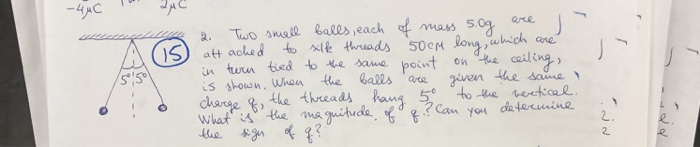 -4μC 2μC
2. Two small balls, each of mass 5.0g are
15 attached to silk threads 50cm long, which are
in turn tied to the same point on the ceiling,
5° 5° is shown. When the balls are given the same
charge q, the threads hang 5° to the vertical.
What is the magnitude of q? Can you determine
the sign of q?
2.
2